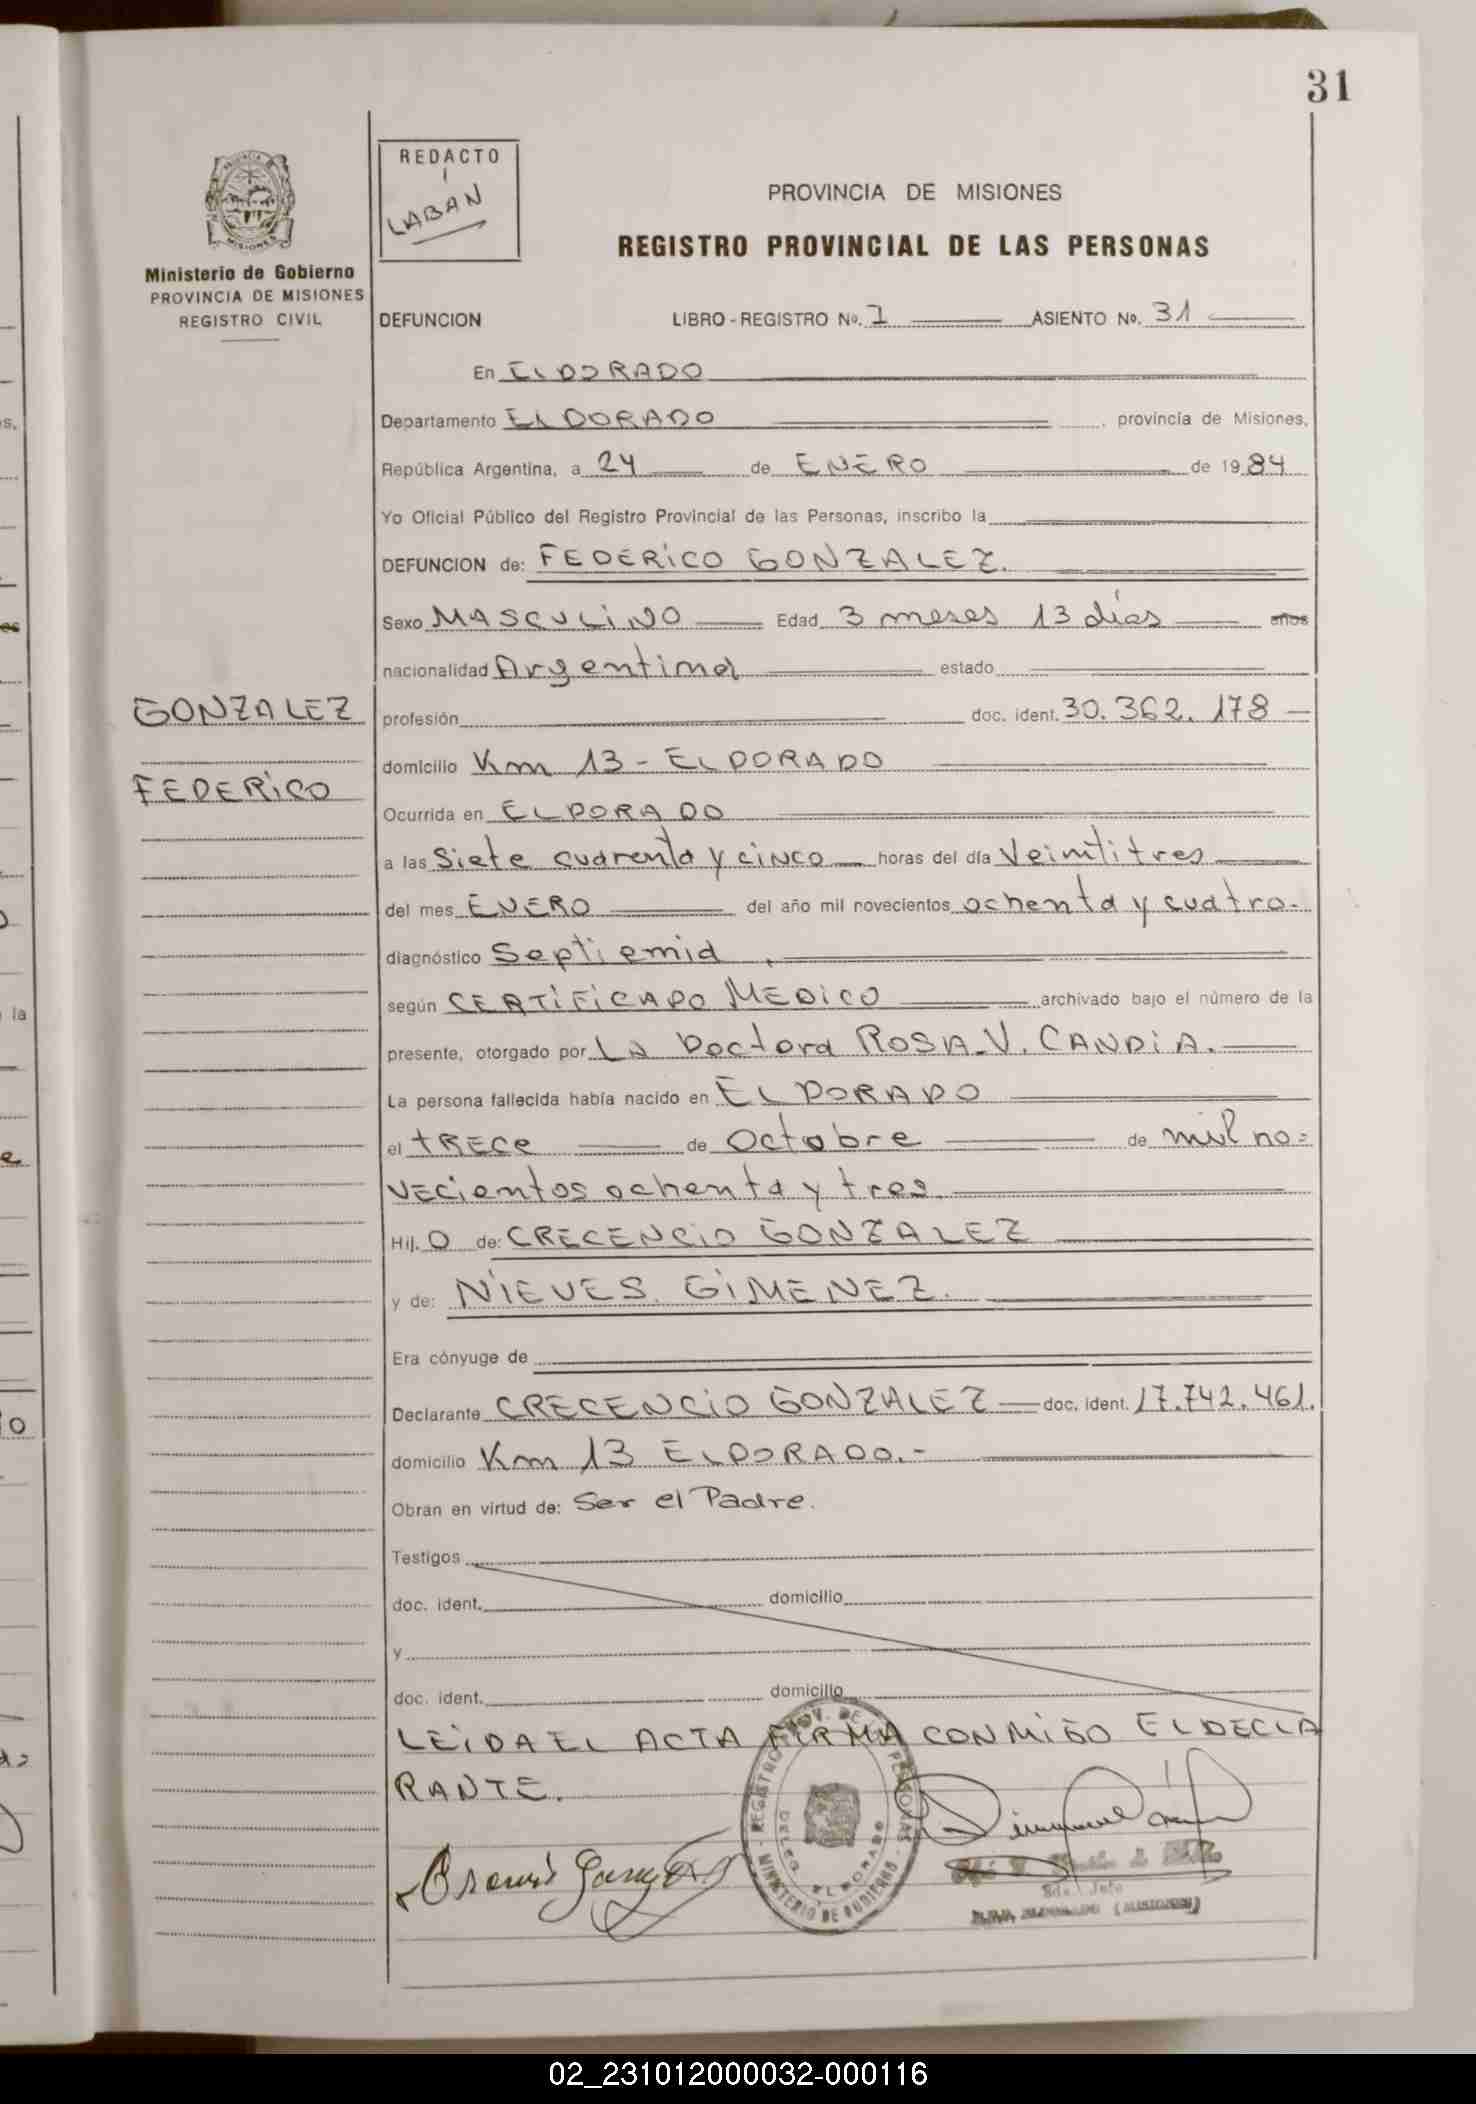 31
REDACTO
LABAN
Ministerio de Gobierno
PROVINCIA DE MISIONES
REGISTRO CIVIL
PROVINCIA DE MISIONES
REGISTRO PROVINCIAL DE LAS PERSONAS
DEFUNCION LIBRO-REGISTRO No. 1 ASIENTO No. 31
En ELDORADO
Departamento ELDORADO, provincia de Misiones,
República Argentina, a 24 de ENERO de 1984
Yo Oficial Público del Registro Provincial de las Personas, inscribo la
DEFUNCION de: FEDERICO GONZALEZ.
Sexo MASCULINO Edad 3 meses 13 días años
nacionalidad Argentina estado
GONZALEZ
FEDERICO
profesión doc. ident. 30.362.178
domicilio Km 13 - ELDORADO
Ocurrida en ELDORADO
a las Siete cuarenta y cinco horas del día Veintitres
del mes ENERO del año mil novecientos ochenta y cuatro.
diagnóstico Septiemia.
según CERTIFICADO MEDICO archivado bajo el número de la
presente, otorgado por LA Doctora ROSA V. CANDIA.
La persona fallecida había nacido en ELDORADO
el TRECE de Octobre de mil no=
vecientos ochenta y tres.
Hij. O de: CRECENCIO GONZALEZ
y de: NIEVES GIMENEZ.
Era cónyuge de
Declarante CRECENCIO GONZALEZ doc. ident. 17.742.461.
domicilio Km 13 ELDORADO.-
Obran en virtud de: Ser el Padre.
Testigos
doc. ident. domicilio
y
doc. ident. domicilio
LEIDA EL ACTA FIRMA CONMIGO EL DECLA
RANTE.
02_231012000032-000116